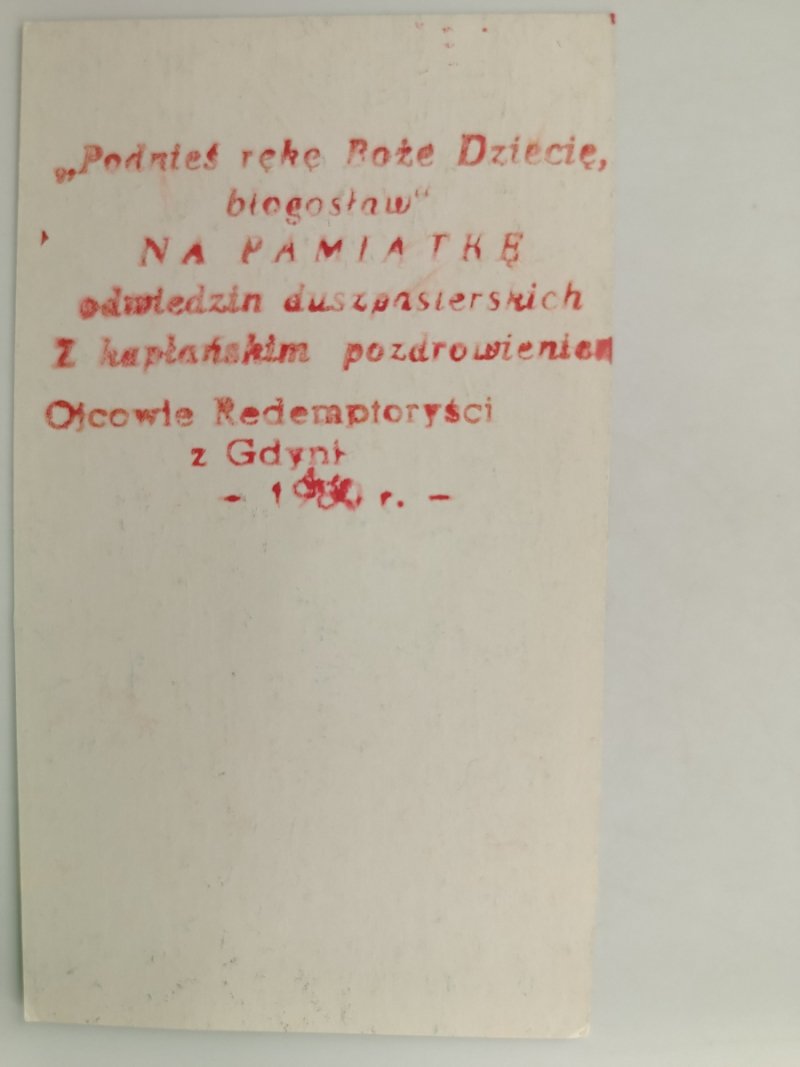 „Podnieś rękę Boże Dziecię,
błogosław“
NA PAMIĄTKĘ
odwiedzin duszpasterskich
Z kapłańskim pozdrowieniem
Ojcowie Redemptoryści
z Gdyni
- 1980 r. -